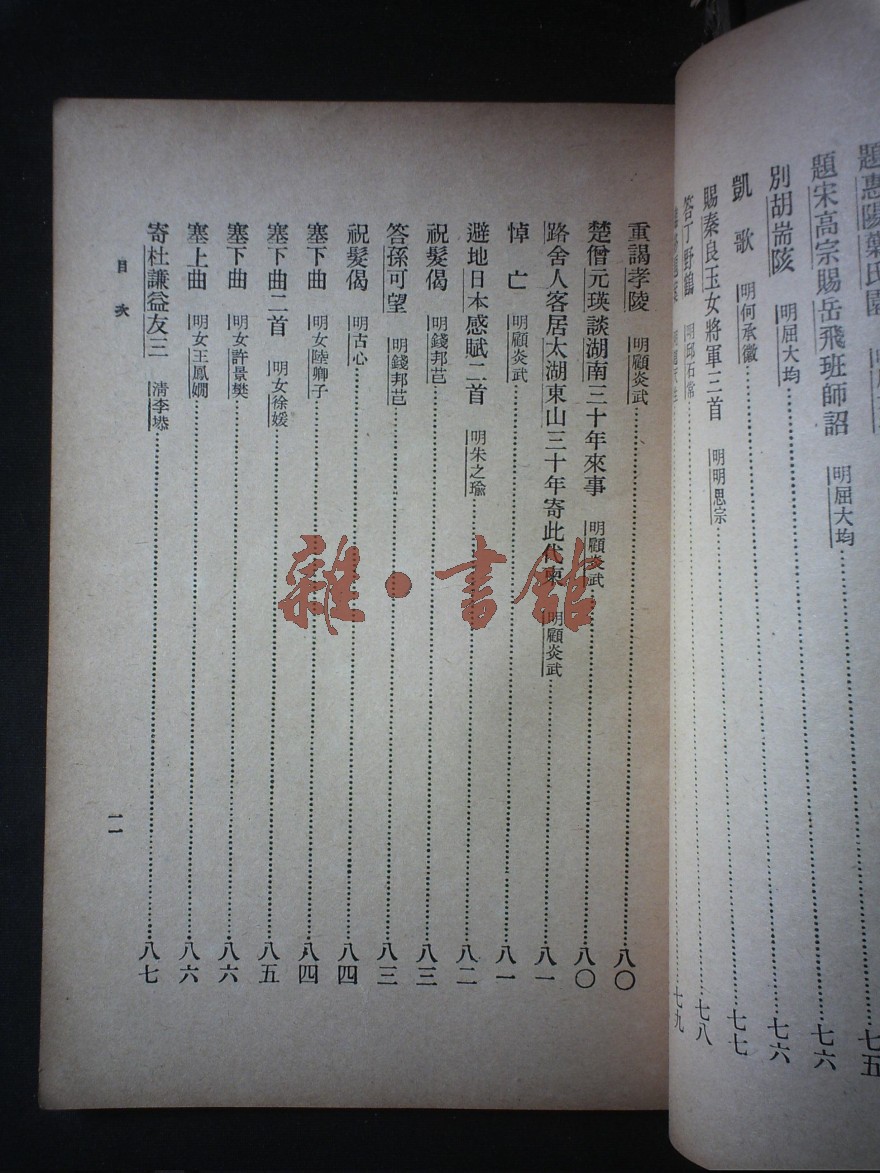 題惠陽葉氏園
題宋高宗賜岳飛班師詔 明屈大均……七六
別胡耑陔 明屈大均……七六
凱歌 明何承徽……七七
賜秦良玉女將軍三首 明明思宗……七八
答丁野鶴 明邱石常
七九
七五
重謁孝陵 明顧炎武……八〇
楚僧元瑛談湖南三十年來事 明顧炎武……八〇
路舍人客居太湖東山三十年寄此代柬 明顧炎武……八一
悼亡 明顧炎武……八一
避地日本感賦二首 明朱之瑜……八二
祝髮偈 明錢邦芑……八三
答孫可望 明錢邦芑……八三
祝髮偈 明古心……八四
塞下曲 明女陸卿子……八四
塞下曲二首 明女徐媛……八五
塞下曲 明女許景樊……八六
塞上曲 明女王鳳嫻……八六
寄杜謙益友三 清李塨……八七
目次
一一
雜·書館